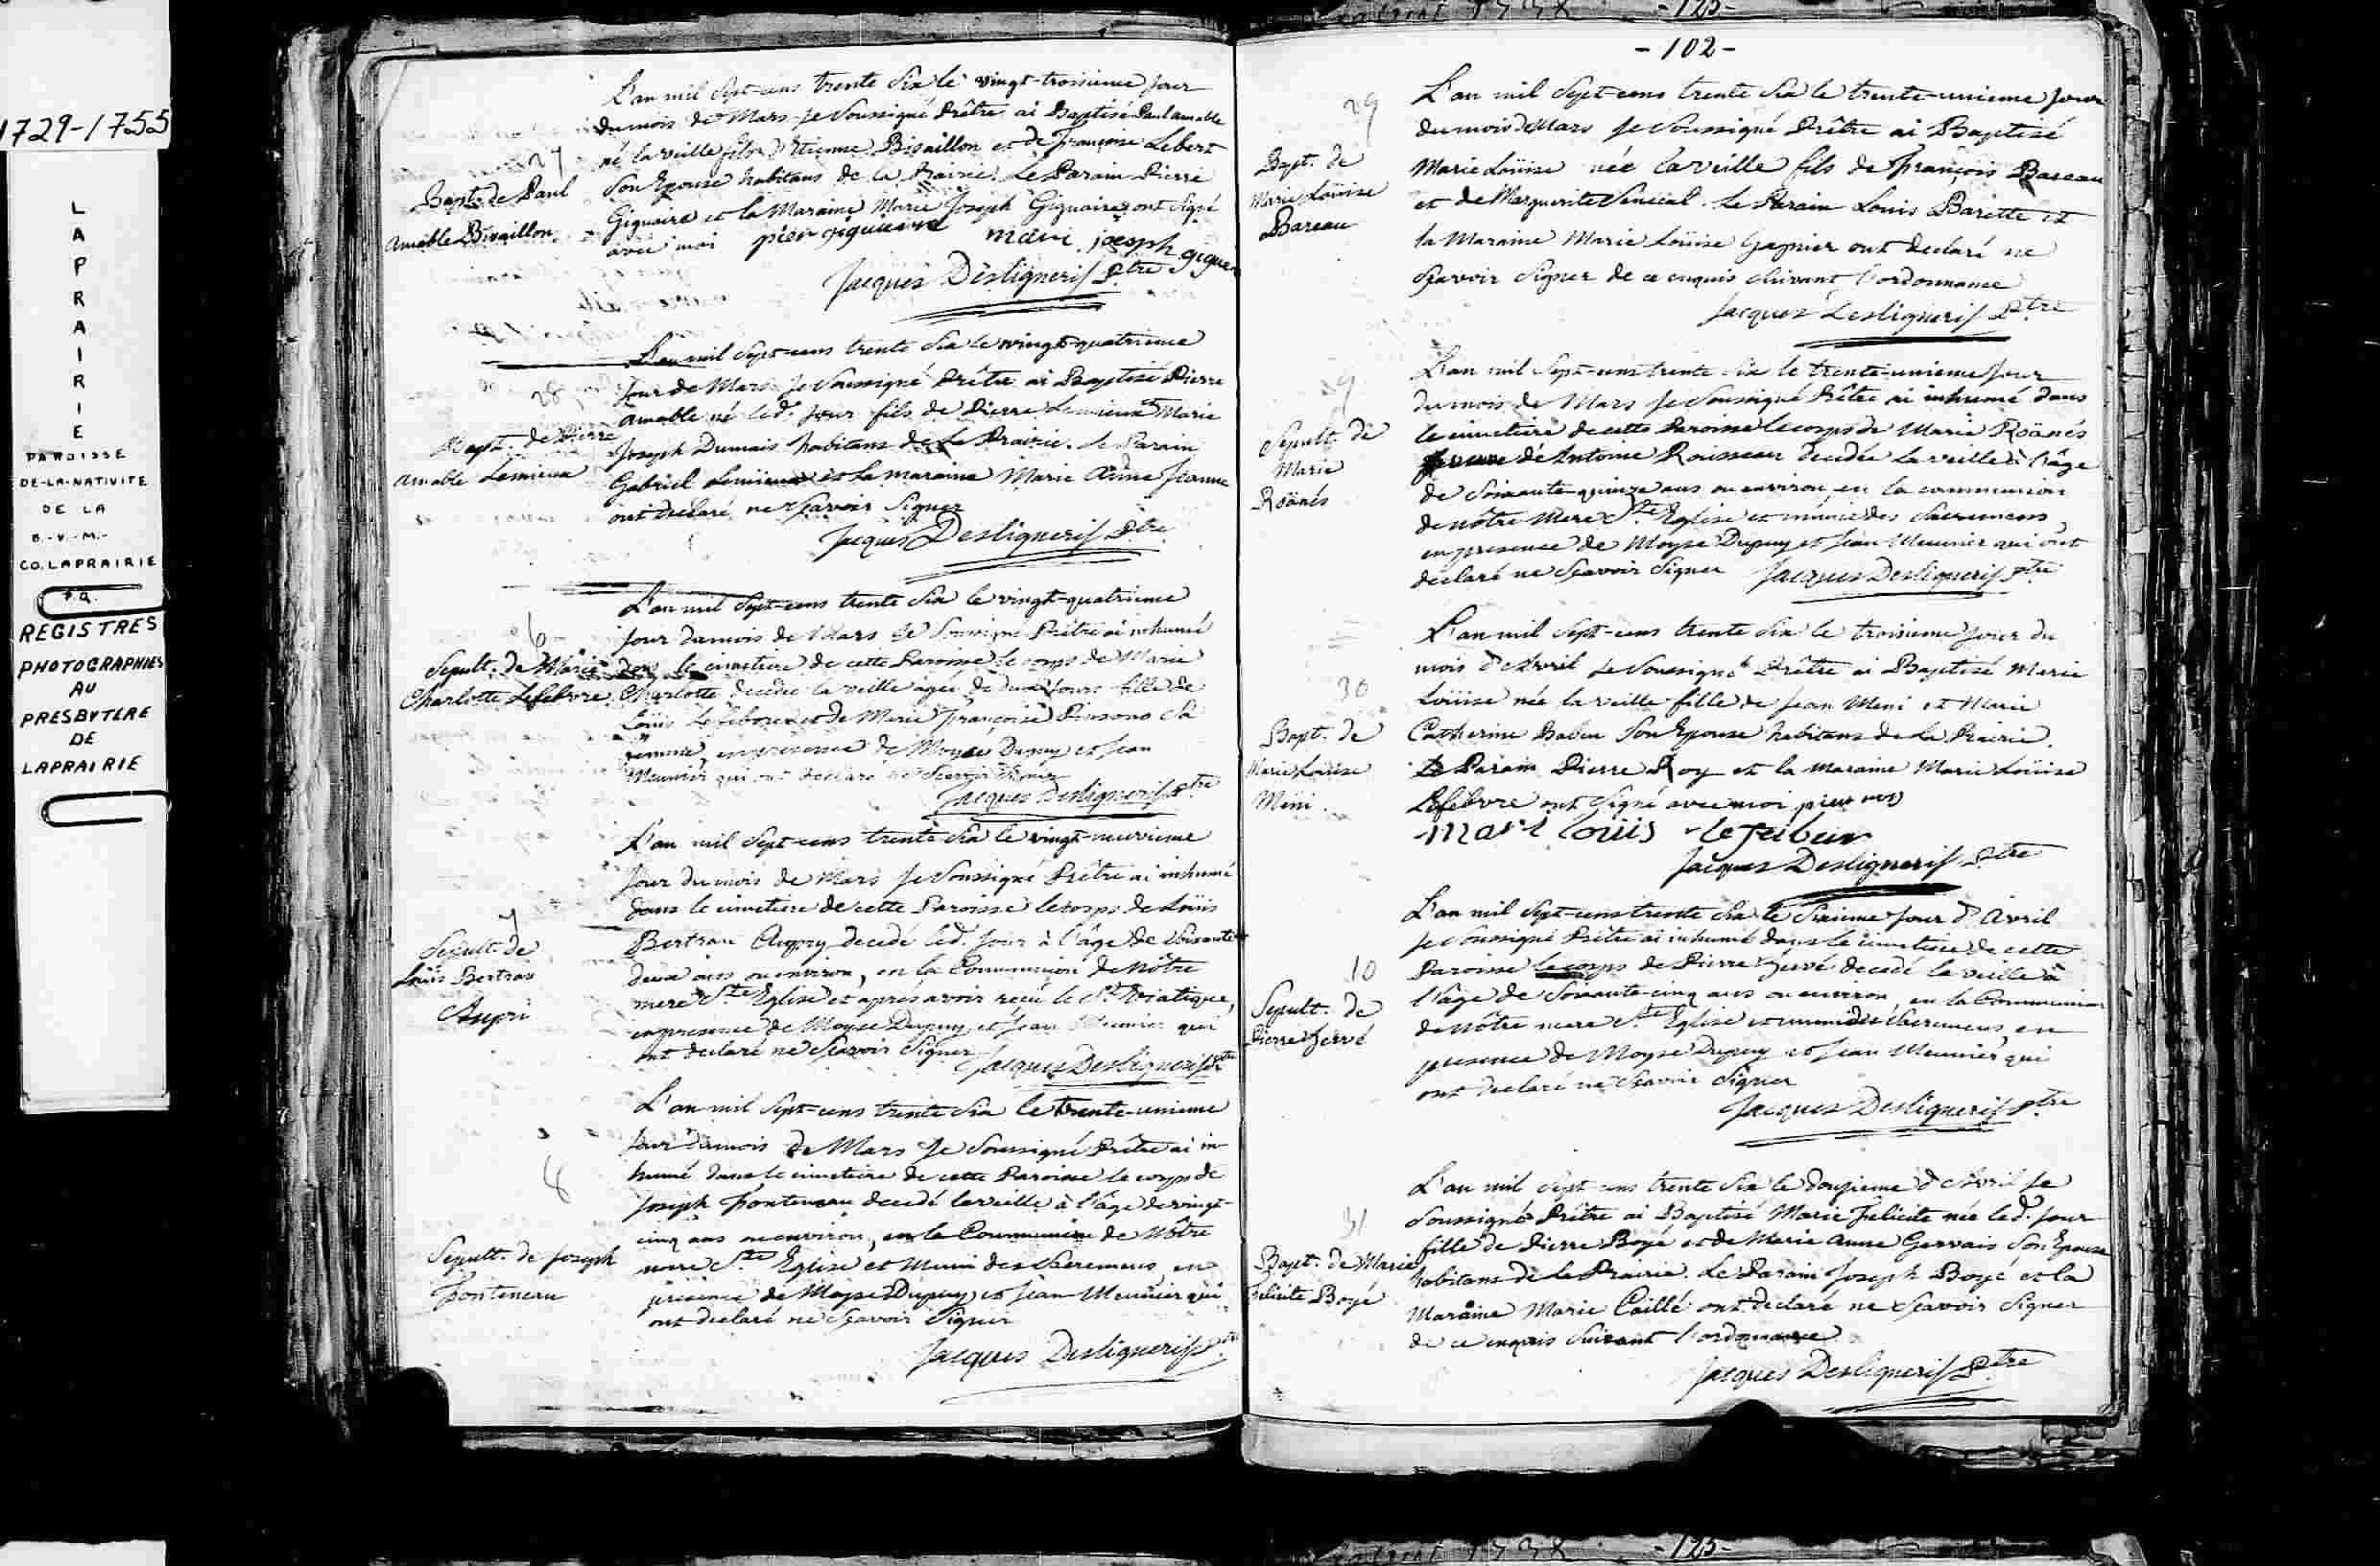 1729-1755
LAPRAIRIE
PAROISSE
DE-LA-NATIVITE
DE LA
B.-V.-M.-
CO. LAPRAIRIE
P.Q.
REGISTRES
PHOTOGRAPHIES
AU
PRESBYTERE
DE
LAPRAIRIE
27
Bapt. de Paul
amable Bisaillon
L'an mil Sept-cens trente Six le vingt-troisieme Jour
du mois de Mars Je Soussigné Prêtre ai Baptisé Paul amable
né la veille fils d'Etienne Bisaillon et de françoise Lebert
Son Epouse habitans de la Prairie. Le Parain Pierre
Giguaire et la Maraine Marie Joseph Giguaire ont Signé
avec moi pier giguaire marie joesph giguer
Jacques Desligneris Ptre
28
Bapt. de Pierre
amable Lemieux
L'an mil Sept-cens trente Six le vingt-quatrieme
Jour de Mars Je Soussigné Prêtre ai Baptisé Pierre
amable né led. Jour fils de Pierre Lemieux et Marie
Joseph Dumais habitans de La Prairie. Le Parain
Gabriel Lemieux et La maraine Marie Anne Jeanne
ont declaré ne Sçavoir Signer
Jacques Desligneris Ptre
6
Sepult. de Marie
Charlotte Lefebvre
L'an mil Sept-cens trente Six le vingt-quatrieme
Jour du mois de Mars Je Soussigné Prêtre ai inhumé
dans le cimetiere de cette Paroisse le corps de Marie
Charlotte decedée la veille agée de deux Jours fille de
Loüis Lefebvre et de Marie françoise Pinsono Sa
femme, en presence de Moyse Dupuy et Jean
Meunier qui ont declaré ne Sçavoir Signer
Jacques Desligneris Ptre
7
Sepult. de
Loüis Bertran
Aupri
L'an mil Sept-cens trente Six le vingt-neuvieme
Jour du mois de Mars Je Soussigné Prêtre ai inhumé
dans le cimetiere de cette Paroisse le corps de Loüis
Bertran Aupry decedé led. Jour à l'âge de Soixante
deux ans ou environ, en la Communion de Nôtre
mere Ste Eglise et aprés avoir reçu le St Viatique,
en presence de Moyse Dupuy et Jean Meunier qui
ont declaré ne Sçavoir Signer Jacques Desligneris Ptre
8
Sepult. de Joseph
fonteneau
L'an mil Sept-cens trente Six le trente-unieme
Jour du mois de Mars Je Soussigné Prêtre ai in-
humé dans le cimetiere de cette Paroisse le corps de
Joseph fonteneau decedé la veille à l'âge de vingt-
cinq ans ou environ, en la Communion de Nôtre
mere Ste Eglise et Muni des Sacremens, en
présence de Moyse Dupuy et Jean Meunier qui
ont declaré ne Sçavoir Signer
Jacques Desligneris Ptre
-102-
29
Bapt. de
Marie Loüise
Bareau
L'an mil Sept-cens trente Six le trente-unieme Jour
du mois de Mars Je Soussigné Prêtre ai Baptisé
Marie Loüise née la veille fils de françois Bareau
et de Marguerite Senécal. Le Parain Louis Barette et
la Maraine Marie Loüise Gagnier ont declaré ne
Sçavoir Signer de ce enquis Suivant l'ordonnance
Jacques Desligneris Ptre
9
Sepult. de
Marie
Roänés
L'an mil Sept-cens trente Six le trente-unieme Jour
du mois de Mars Je Soussigné Prêtre ai inhumé dans
le cimetiere de cette Paroisse le corps de Marie Roänés
de Antoine Rousseau decedée la veille à l'âge
de Soixante-quinze ans ou environ, en la communion
de nôtre Mere Ste Eglise et munie des Sacremens,
en presence de Moyse Dupuy et Jean Meunier qui ont
declaré ne Sçavoir Signer Jacques Desligneris Ptre
30
Bapt. de
Marie Loüise
Mini.
L'an mil Sept-cens trente Six le troisieme Jour du
mois d'Avril Je Soussigné Prêtre ai Baptisé Marie
Loüise née la veille fille de Jean Meni et Marie
Catherine Babeu Son Epouse habitans de La Prairie.
Le Parain Pierre Roy et la Maraine Marie Loüise
Lefebvre ont Signé avec moi pier roy
mari loüis lefeibur
Jacques Desligneris Ptre
10
Sepult. de
Pierre hervé
L'an mil Sept-cens trente Six le Sixieme Jour d'Avril
Je Soussigné Prêtre ai inhumé dans le cimetiere de cette
Paroisse le corps de Pierre hervé decedé la veille à
l'âge de Soixante-cinq ans ou environ, en la Communion
de Nôtre mere Ste Eglise et muni des Sacremens, en
presence de Moyse Dupuy et Jean Meunier qui
ont declaré ne Sçavoir Signer
Jacques Desligneris Ptre
31
Bapt. de Marie
felicite Boyé
L'an mil Sept-cens trente Six le douzieme d'Avril Je
Soussigné Prêtre ai Baptisé Marie felicite née led. Jour
fille de Pierre Boyé et de Marie Anne Gervais Son Epouse
habitans de La Prairie. Le Parain Joseph Boyé et la
Maraine Marie Caillé ont declaré ne Sçavoir Signer
de ce enquis Suivant l'ordonnance
Jacques Desligneris Ptre
-125-